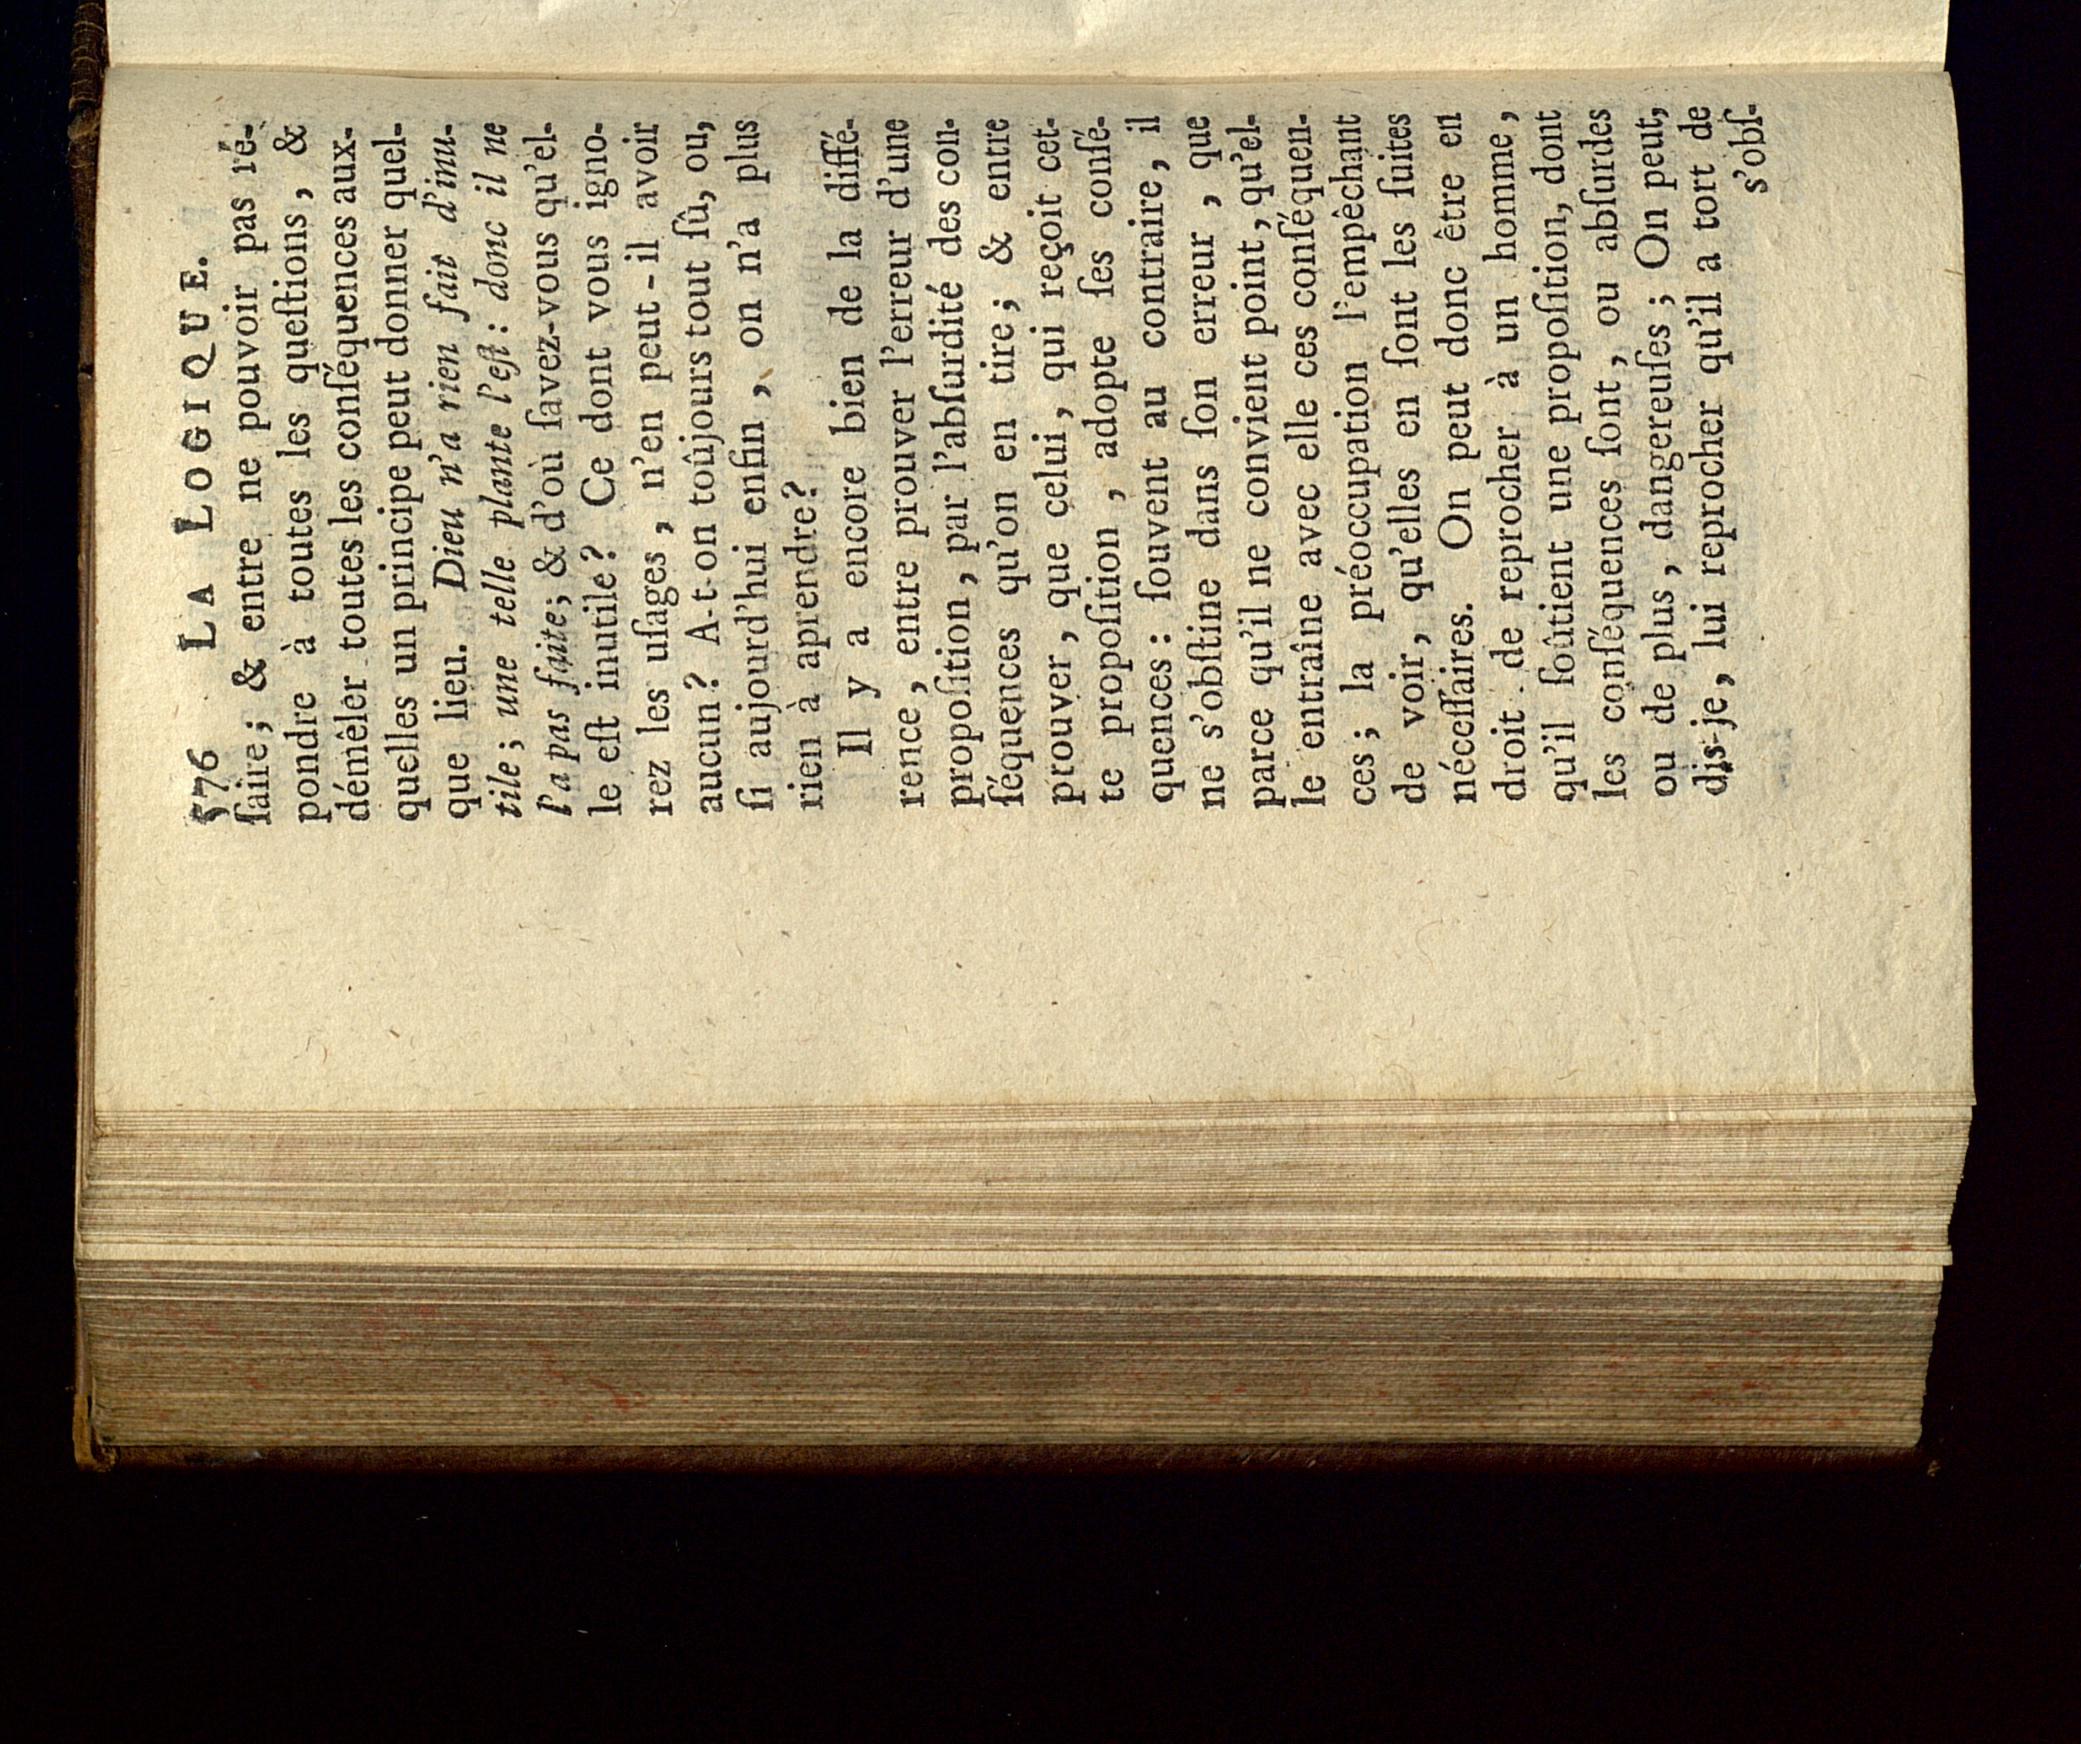 576 LA LOGIQUE.
faire; & entre ne pouvoir pas ré-
pondre à toutes les queſtions, &
démêler toutes les conſéquences aux-
quelles un principe peut donner quel-
que lieu. Dieu n'a rien fait d'inu-
tile; une telle plante l'eſt: donc il ne
l'a pas faite; & d'où ſavez-vous qu'el-
le eſt inutile? Ce dont vous igno-
rez les uſages, n'en peut-il avoir
aucun? A-t-on toûjours tout ſû, ou,
ſi aujourd'hui enfin, on n'a plus
rien à aprendre?
Il y a encore bien de la diffé-
rence, entre prouver l'erreur d'une
propoſition, par l'abſurdité des con-
ſéquences qu'on en tire; & entre
prouver, que celui, qui reçoit cet-
te propoſition, adopte ſes conſé-
quences: ſouvent au contraire, il
ne s'obſtine dans ſon erreur, que
parce qu'il ne convient point, qu'el-
le entraîne avec elle ces conſéquen-
ces; la préoccupation l'empêchant
de voir, qu'elles en ſont les ſuites
néceſſaires. On peut donc être en
droit de reprocher à un homme,
qu'il ſoûtient une propoſition, dont
les conſéquences ſont, ou abſurdes
ou de plus, dangereuſes; On peut,
dis-je, lui reprocher qu'il a tort de
s'obſ-